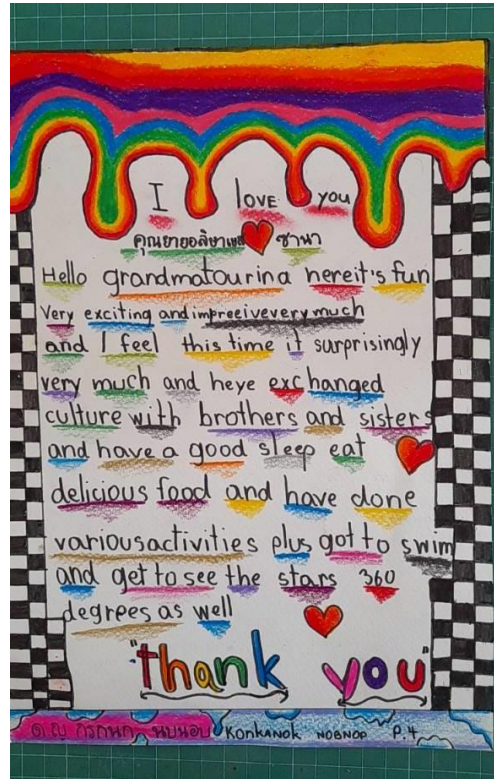 I love you
คุณยายอลิษาเพช ซานา
Hello grandmatourina hereit's fun
Very exciting and impreeivevery much
and I feel this time it surprisingly
very much and heye exchanged
culture with brothers and sisters
and have a good sleep eat
delicious food and have done
variousactivities plus got to swim
and get to see the stars 360
degrees as well
"thank you"
ด.ญ กรกนก นบนอบ Konkanok NOBNOP P.4